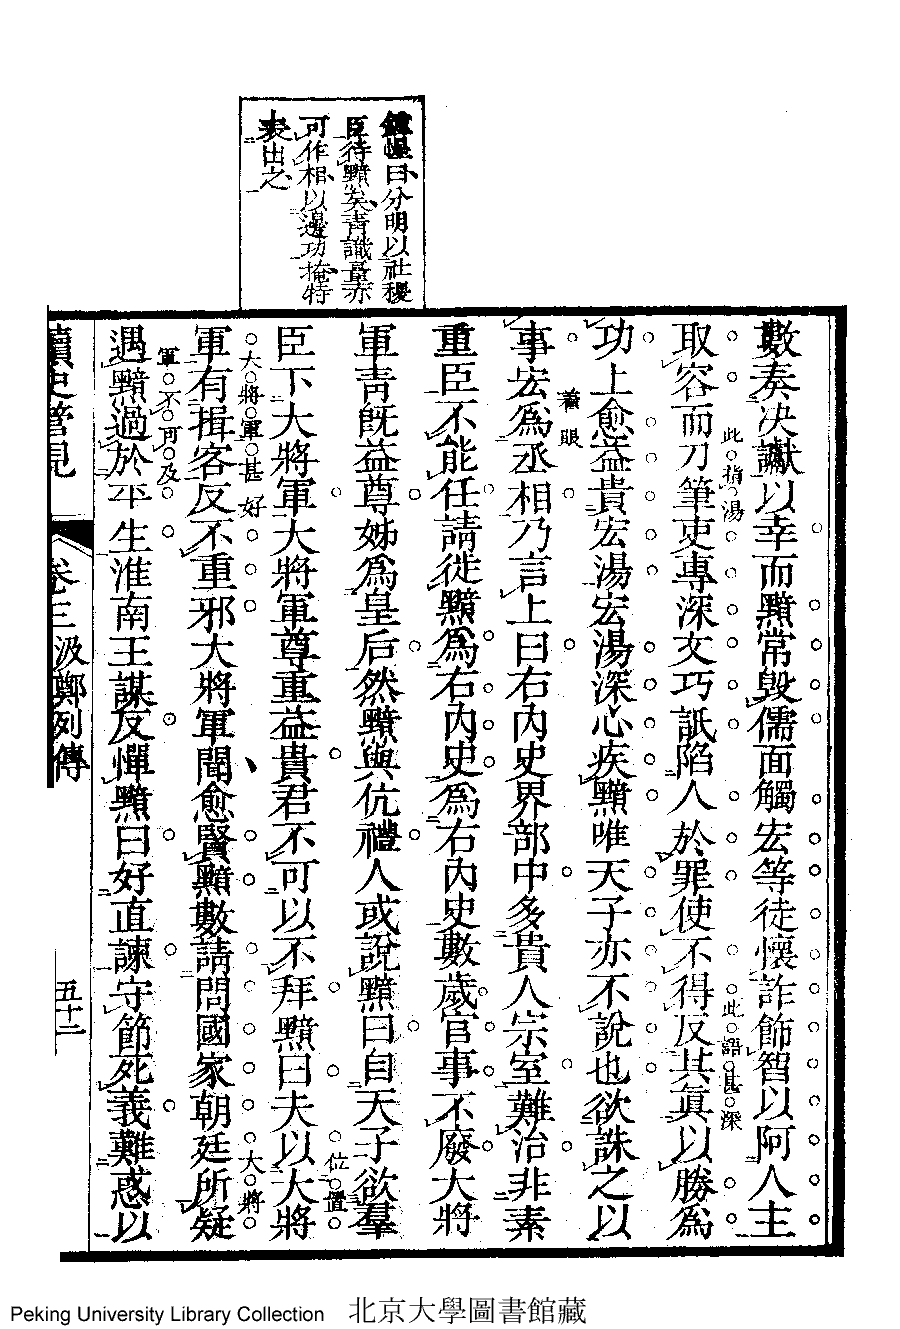 鍾惺曰分明以社稷
臣待黯矣青識量亦
可作相以邊功掩特
表出之
數奏決讞以幸而黯常毀儒面觸宏等徒懷詐飾智以阿人主
取容而刀筆吏專深文巧詆陷人於罪使不得反其眞以勝爲
此指湯
此語甚深
功上愈益貴宏湯宏湯深心疾黯唯天子亦不說也欲誅之以
着眼
事宏爲丞相乃言上曰右內史界部中多貴人宗室難治非素
重臣不能任請徙黯爲右內史爲右內史數歲官事不廢大將
軍靑旣益尊姊爲皇后然黯與伉禮人或說黯曰自天子欲羣
位置
臣下大將軍大將軍尊重益貴君不可以不拜黯曰夫以大將
大將軍甚好
軍有揖客反不重邪大將軍聞愈賢黯數請問國家朝廷所疑
大將
軍不可及
遇黯過於平生淮南王謀反憚黯曰好直諫守節死義難惑以
讀史管見
卷三 汲鄭列傳
五十二
Peking University Library Collection 北京大學圖書館藏